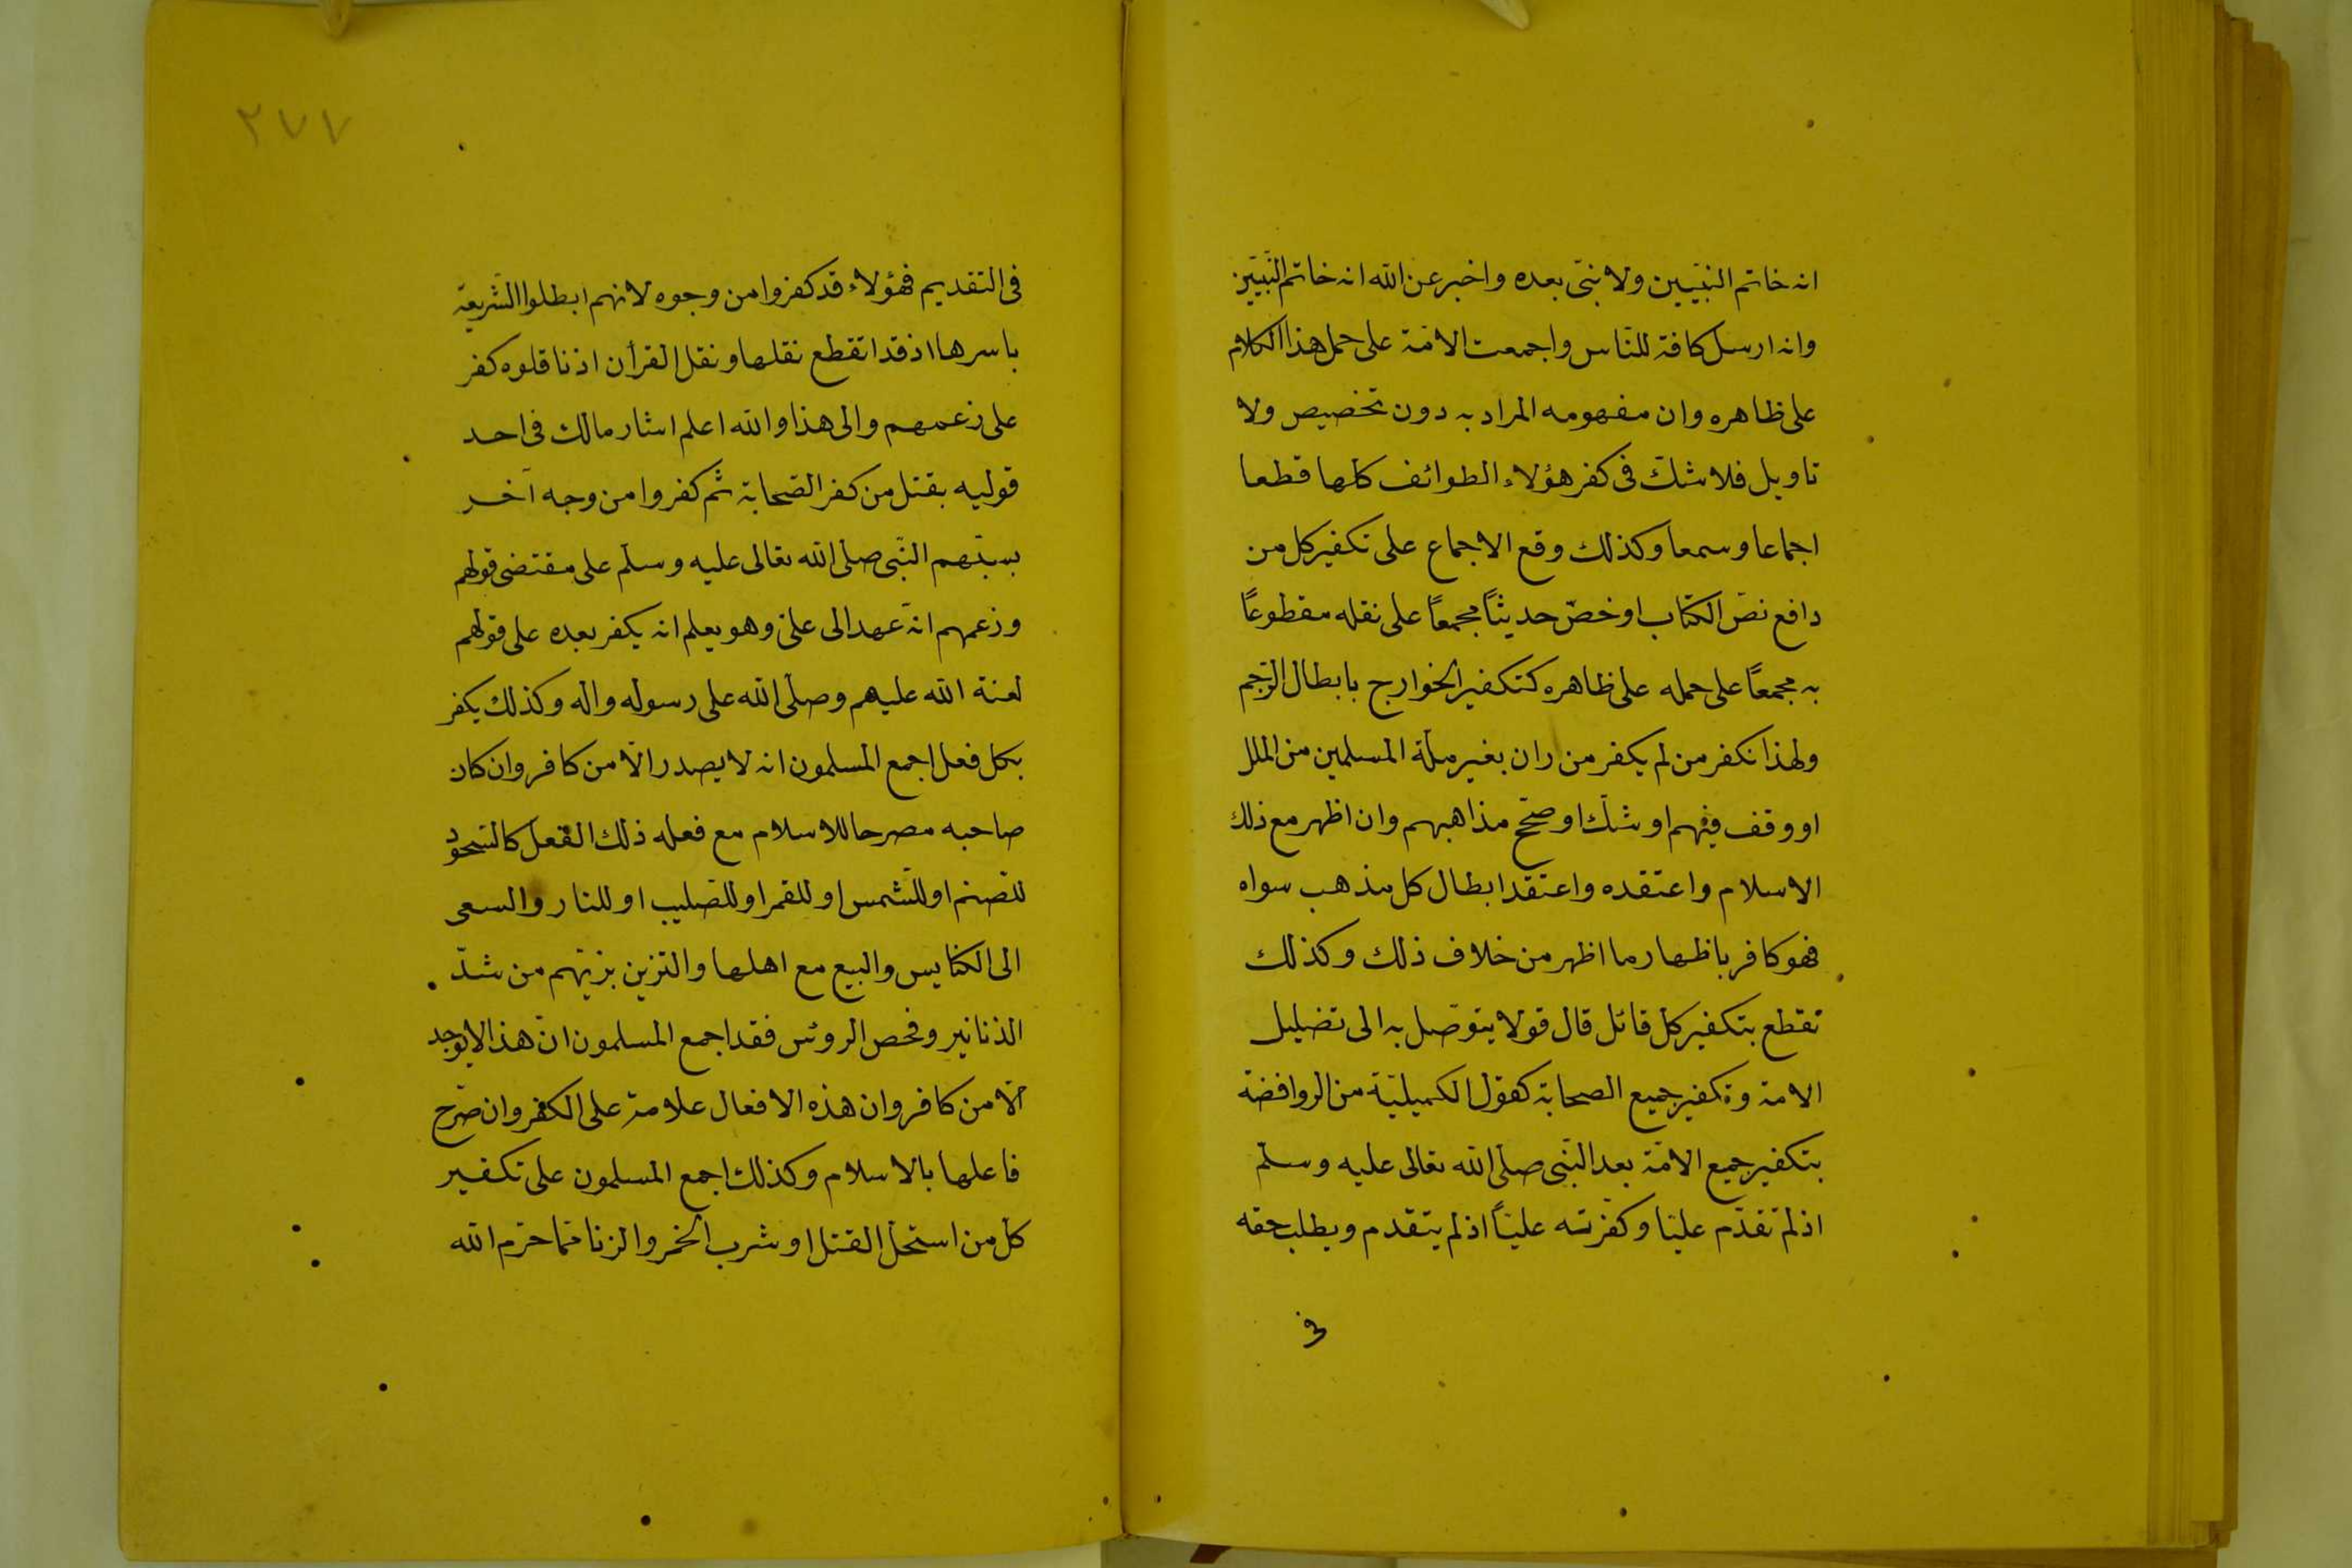 انه خاتم النبيّين ولا نبىّ بعده واخبر عن الله انه خاتم النّبيّين
وانه ارسل كافة للنّاس واجمعت الامّة على حمل هذا الكلام
على ظاهره وان مفهومه المراد به دون تخصيص ولا
تاويل فلا شكّ فى كفر هؤلاء الطوائف كلّها قطعا
اجماعا وسمعا وكذلك وقع الاجماع على تكفير كل من
دافع نصّ الكتاب او خصّ حديثاً مجمعاً على نقله مقطوعاً
به مجمعاً على حمله على ظاهره كتكفير الخوارج بابطال الرّجم
ولهذا نكفر من لم يكفر من دان بغير ملّة المسلمين من الملل
او وقف فيهم او شكّ او صحّح مذاهبهم وان اظهر مع ذلك
الاسلام واعتقده واعتقد ابطال كل مذهب سواه
فهو كافر باظهار ما اظهر من خلاف ذلك وكذلك
نقطع بتكفير كل قائل قال قولا يتوصّل به الى تضليل
الامة وتكفير جميع الصحابة كقول الكميليّة من الروافضة
بتكفير جميع الامّة بعد النّبى صلّى الله تعالى عليه وسلّم
اذ لم تقدّم عليّا وكفّرته عليّاً اذ لم يتقدم ويطلب حقه
فى
٢٧٧
فى التقديم فهؤلاء قد كفروا من وجوه لانهم ابطلوا الشّريعة
باسرها اذ قد انقطع نقلها ونقل القرأن اذ ناقلوه كفر
على زعمهم والى هذا والله اعلم اشار مالك فى احد
قوليه بقتل من كفر الصّحابة ثم كفروا من وجه آخر
بسبّهم النّبى صلّى الله تعالى عليه وسلّم على مقتضى قولهم
وزعمهم انّه عهد الى علىّ وهو يعلم انه يكفر بعده على قولهم
لعنة الله عليهم وصلّى الله على رسوله واله وكذلك يكفر
بكل فعل اجمع المسلمون انه لا يصدر الّا من كافر وان كان
صاحبه مصرحا للاسلام مع فعله ذلك الفعل كالسّجود
للصّنم او للشّمس او للقمر او للصّليب او للنار والسعى
الى الكنايس والبيع مع اهلها والتزين بزيّهم من شدّ
الذنانير وفحص الروئس فقد اجمع المسلمون انّ هذا لا يوجد
الّا من كافر وان هذه الافعال علامة على الكفر وان صرّح
فاعلها بالاسلام وكذلك اجمع المسلمون على تكفير
كلّ من استحلّ القتل او شرب الخمر والزنا ممّا حرّم الله